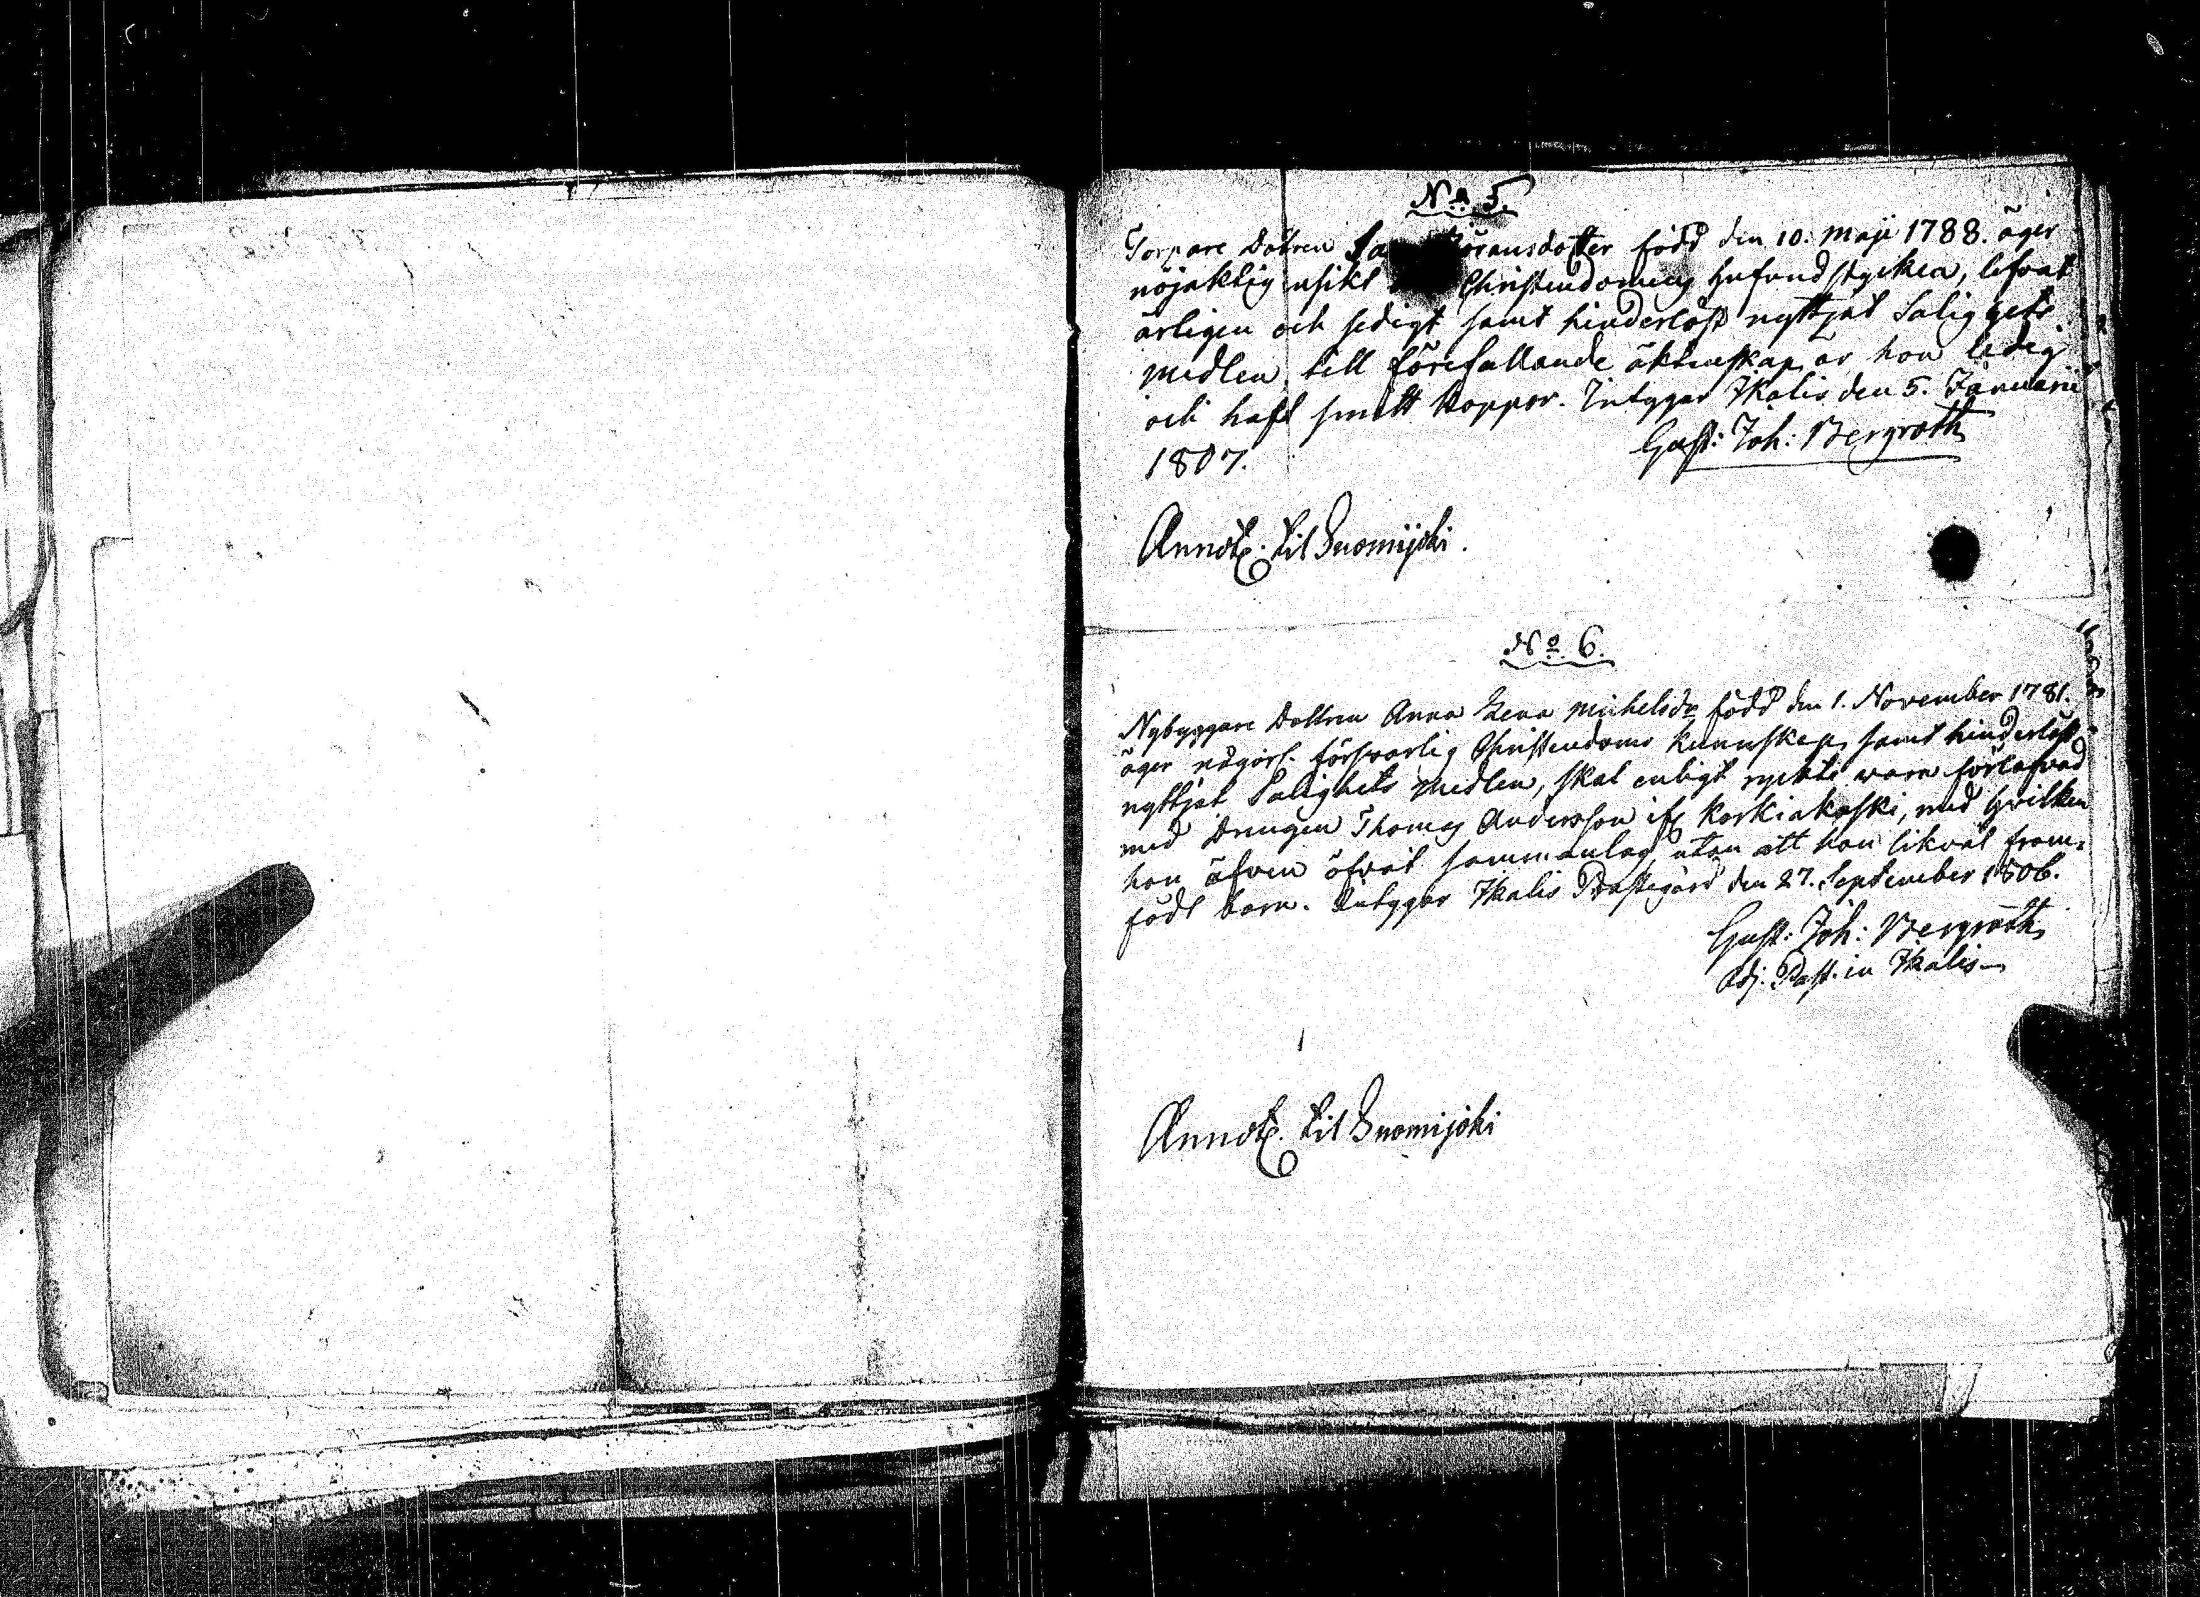 No 5.
Torpare Dottren Sa Göransdotter född den 10. Maji 1788. äger
nöjaktig insikt Christendomens hufvudstycken, lefvat
ärligen och sedigt samt hinderlöst nyttjat Saliggets
medlen, till förefallande äktenskap är hon ledig
och haft smitt koppor. Intygar Ikalis den 5. Januarii
1807. Gust: Joh: Bergroth
Annot. til Suomijoki.
No 6.
Nybyggare Dottren Anna Lena Michelsdr född den 1. November 1781.
äger någorl. försvarlig Christendoms kunnskap, samt hinderlöst
nyttjat Salighets medlen, skal enligt rykte vara förlofvad
med Drengen Thomas Andersson ifr Korkiakoski, med hvilken
hon äfven öfvat sammanlag, utan att hon likväl fram-
födt barn. Intygar Ikalis Prästegård den 27. September 1806.
Gust: Joh: Bergroth
Adj. Past. in Ikalis
Annot. til Suomijoki